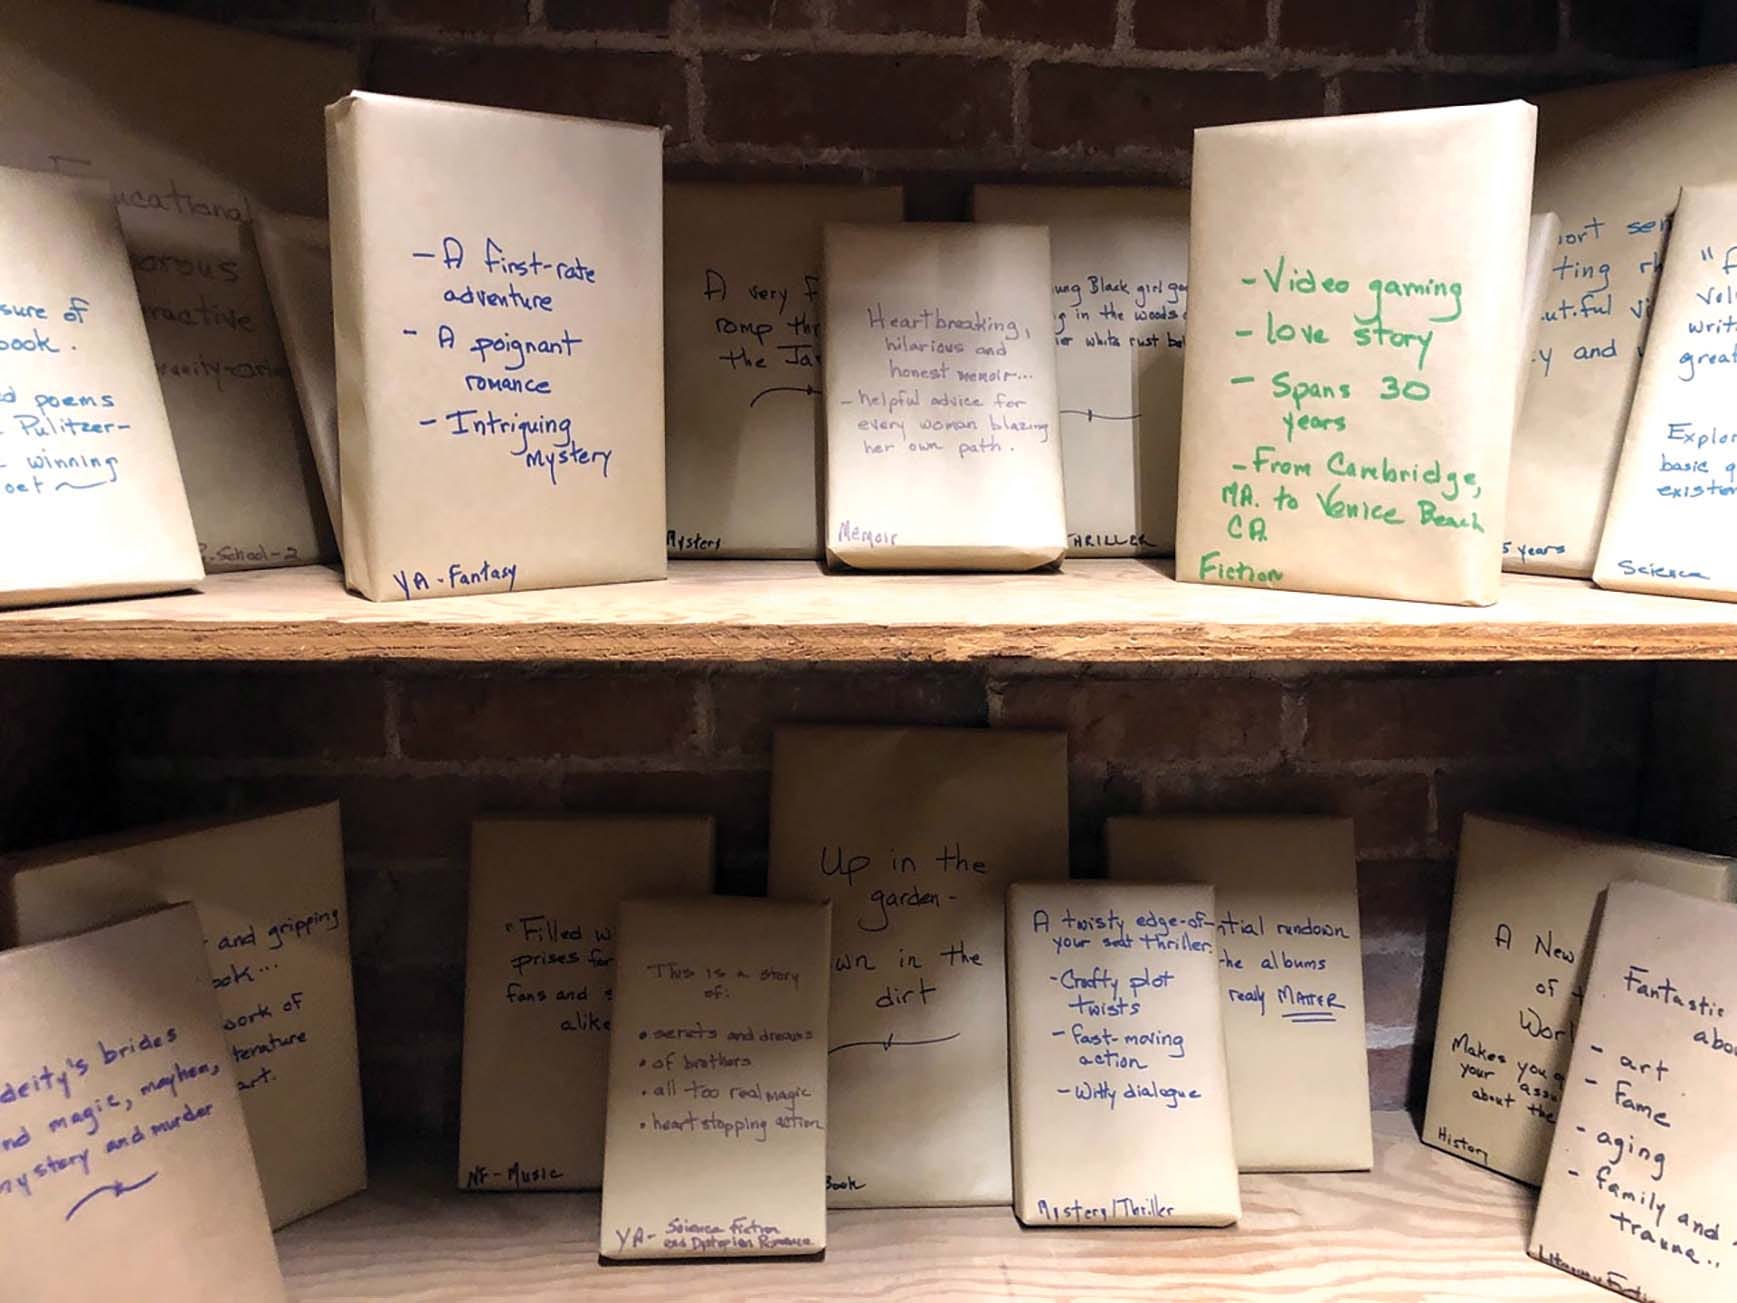 sure of
book.
poems
Pulitzer-
winning
Educational
P. School-2
- A first-rate
adventure
- A poignant
romance
- Intriguing
mystery
YA-Fantasy
A very
romp
the
Mystery
Heartbreaking,
hilarious and
honest memoir...
- helpful advice for
every woman blazing
her own path.
Memoir
Black girl
in the woods
white rust
THRILLER
- Video gaming
- love story
- Spans 30
years
- From Cambridge,
MA. to Venice Beach
CA.
Fiction
and
5 years
great
basic
Science
deity's brides
magic, mayhem,
mystery and murder
and gripping
work of
art.
"Filled
fans and
alike
NF-Music
This is a story
of:
• secrets and dreams
• of brothers
• all too real magic
• heart stopping action
YA- Science Fiction
and Dystopian Romance
Up in the
garden-
in the
dirt
Book
A twisty edge-of-
your seat thriller.
- Crafty plot
twists
- fast-moving
action
- Witty dialogue
Mystery/Thriller
rundown
the albums
really MATTER
A New
of
Makes you
your
about the
History
Fantastic
- art
- Fame
- aging
- family and
trauma..